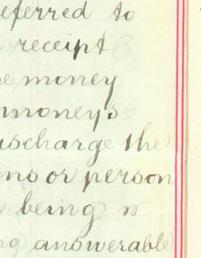 eferred to
receipt
e money
moneys
ischarge the
ns or person
being
ng answerable